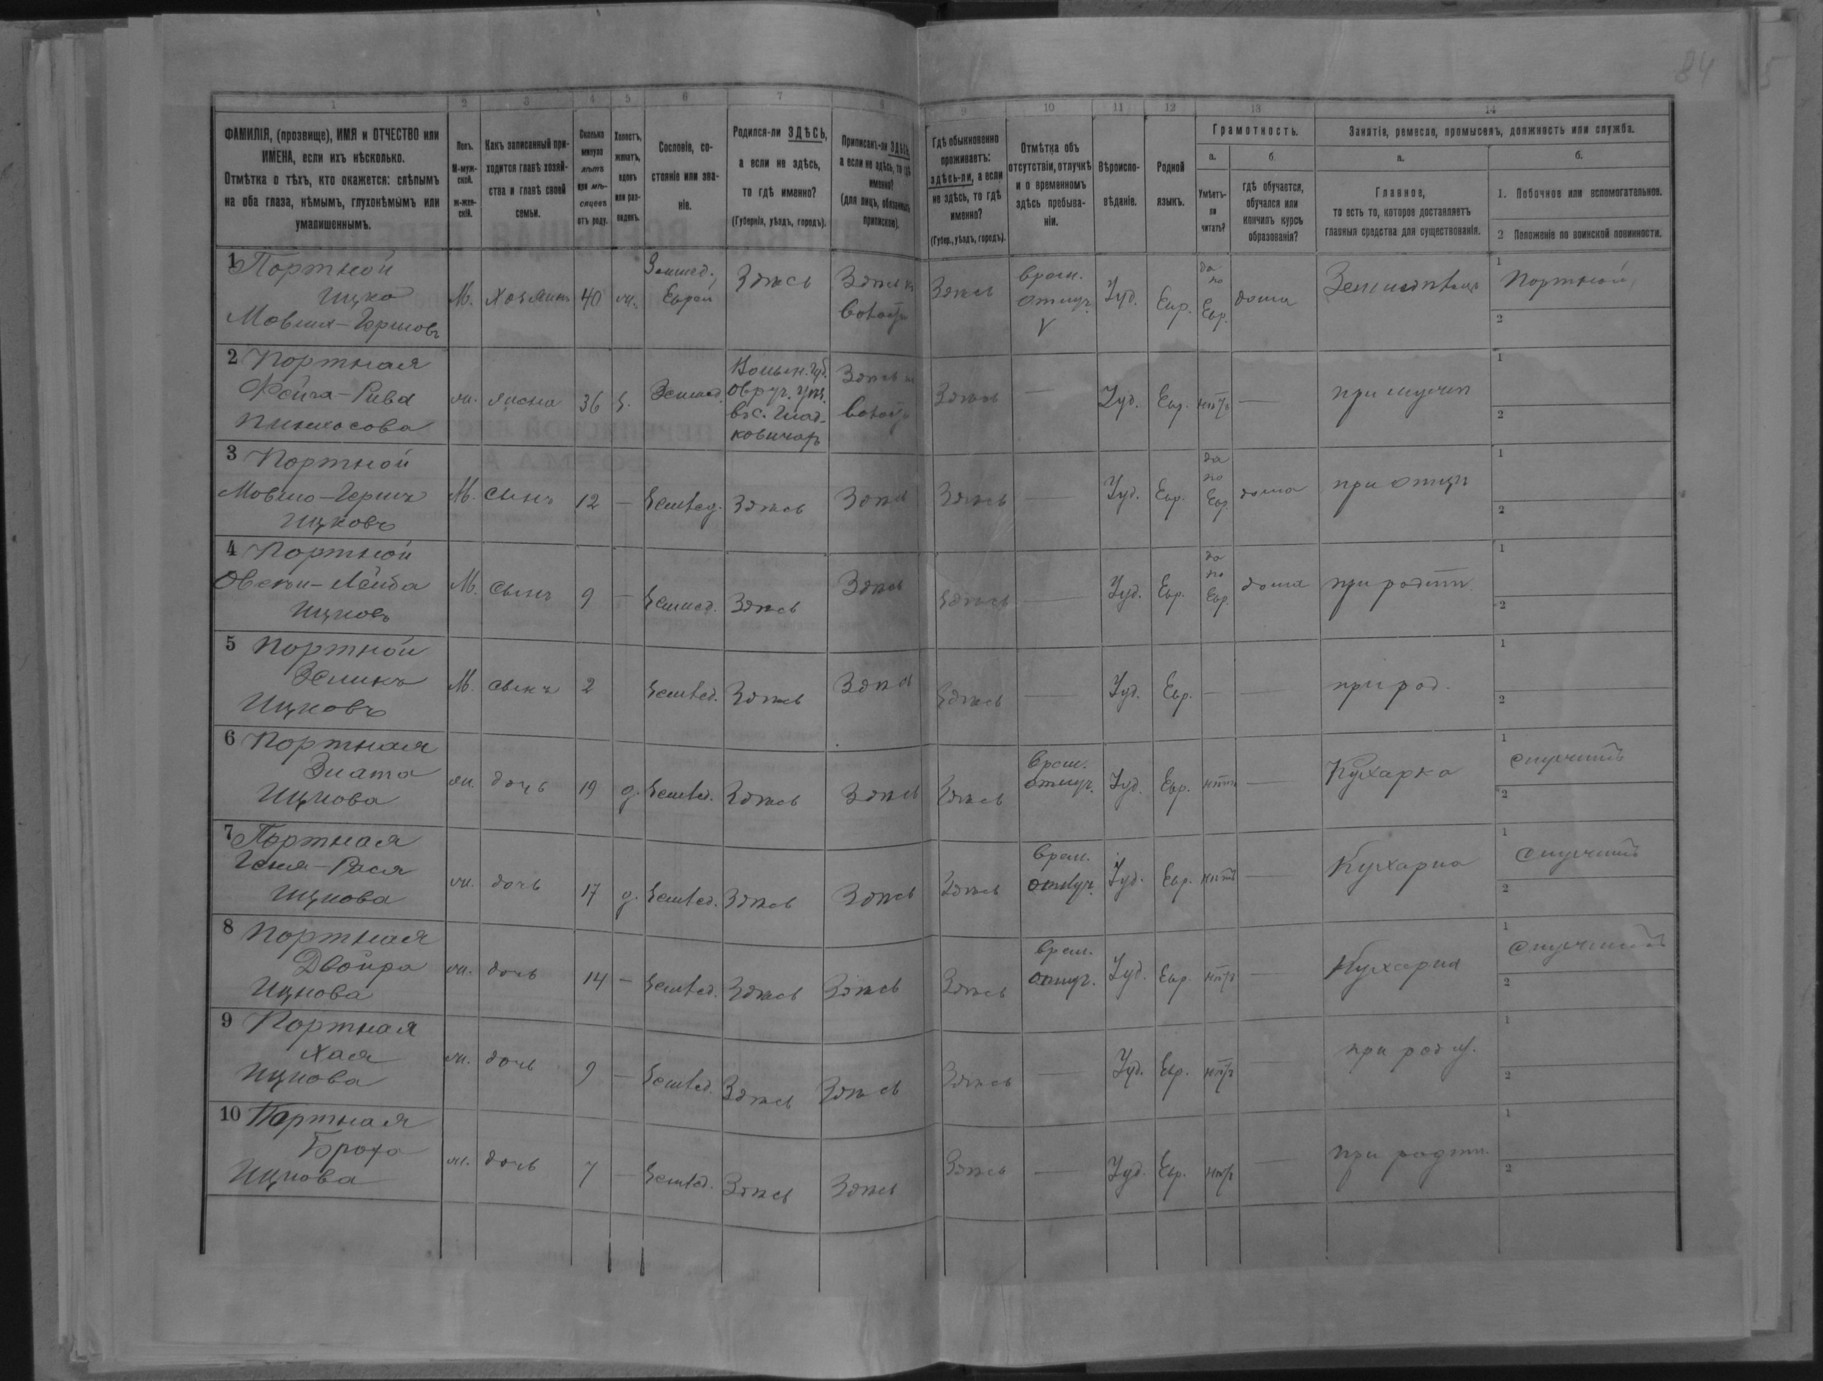 84
1 2 3 4 5 6 7 8 9 10 11 12 13 14
ФАМИЛІЯ, (прозвище), ИМЯ и ОТЧЕСТВО или
ИМЕНА, если ихъ нѣсколько.
Отмѣтка о тѣхъ, кто окажется: слѣпымъ
на оба глаза, нѣмымъ, глухонѣмымъ или
умалишеннымъ.
Полъ.
М-муж-
ской.
ж-жен-
скій.
Какъ записанный при-
ходится главѣ хозяй-
ства и главѣ своей
семьи.
Сколько
минуло
лѣтъ
или мѣ-
сяцевъ
отъ роду.
Холостъ,
женатъ,
вдовъ
или раз-
веденъ.
Сословіе, со-
стояніе или зва-
ніе.
Родился-ли ЗДѢСЬ,
а если не здѣсь,
то гдѣ именно?
(Губернія, уѣздъ, городъ).
Приписанъ-ли ЗДѢСЬ,
а если не здѣсь, то гдѣ
именно?
(для лицъ, обязанныхъ
припиской).
Гдѣ обыкновенно
проживаетъ:
здѣсь-ли, а если
не здѣсь, то гдѣ
именно?
(Губер., уѣздъ, городъ).
Отмѣтка объ
отсутствіи, отлучкѣ
и о временномъ
здѣсь пребыва-
ніи.
Вѣроиспо-
вѣданіе.
Родной
языкъ.
Грамотность.
а.
Умѣетъ-
ли
читать?
б
гдѣ обучается,
обучался или
кончилъ курсъ
образованія?
Занятія, ремесло, промыселъ, должность или служба.
а.
Главное,
то есть то, которое доставляетъ
главныя средства для существованія.
б.
1. Побочное или вспомогательное.
2 Положеніе по воинской повинности.
1 Портной
Ицко
Мовша-Гершовъ
М. Хозяинъ 40 ж. Землед. Еврей Здѣсь Здѣсь Здѣсь врем. отлуч. V Іуд. Евр. да по Евр. дома Земледѣлецъ 1 Портной 2
2 Портная
Фейга-Рива
Пинхасова
ж. жена 36 з. Землед. Волын. Губ. Овруч. уѣз. въ с. Гладковичахъ Здѣсь Здѣсь — Іуд. Евр. нѣтъ — при мужѣ 1 2
3 Портной
Мовшо-Гершъ
Ицковъ
М. сынъ 12 — Землед. Здѣсь Здѣсь Здѣсь — Іуд. Евр. да по Евр дома при отцѣ 1 2
4 Портной
Овсей-Лейба
Ицковъ
М. сынъ 9 — Землед. Здѣсь Здѣсь Здѣсь — Іуд. Евр. да по Евр. дома при родит 1 2
5 Портной
Зеликъ
Ицковъ
М. сынъ 2 Землед. Здѣсь Здѣсь Здѣсь — Іуд. Евр. — — при род. 1 2
6 Портная
Злата
Ицкова
ж. дочь 19 д. Землед. Здѣсь Здѣсь Здѣсь врем. отлуч. Іуд. Евр. нѣтъ — Кухарка 1 служитъ 2
7 Портная
Геня-Рася
Ицкова
ж. дочь 17 д. Землед. Здѣсь Здѣсь Здѣсь врем. отлуч. Іуд. Евр. нѣтъ — Кухарка 1 служитъ 2
8 Портная
Двойра
Ицкова
ж. дочь 14 — Землед. Здѣсь Здѣсь Здѣсь врем. отлуч. Іуд. Евр. нѣтъ — Кухарка 1 служитъ 2
9 Портная
Хая
Ицкова
ж. дочь 9 — Землед. Здѣсь Здѣсь Здѣсь — Іуд. Евр. нѣтъ — при род. 1 2
10 Портная
Броха
Ицкова
ж. дочь 7 — Землед. Здѣсь Здѣсь Здѣсь — Іуд. Евр. нѣтъ — при родит. 1 2